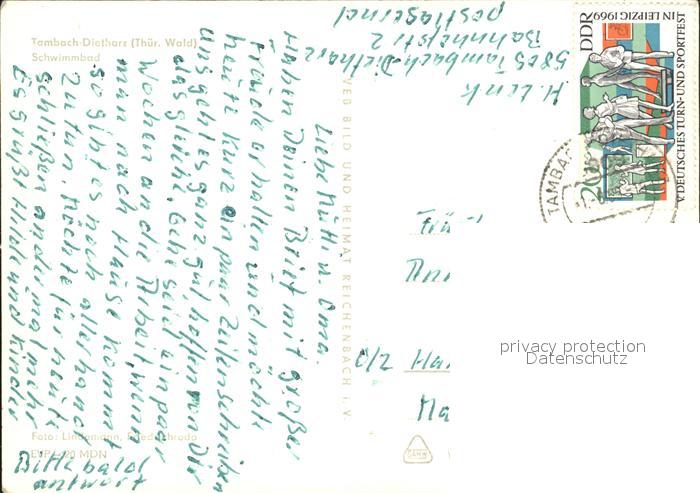 Tambach-Dietharz (Thür. Wald)
Schwimmbad
Liebe Mutti u. Oma.
Haben Deinen Brief mit großer
Freude erhalten und möchte
heute kurz ein paar Zeilen schreiben
uns geht es ganz gut, hoffen von Dir
das gleiche. Gehe seid ein paar
Wochen an die Arbeit, wenn
man nach Hause kommt
so gibt es noch allerhand
zu tun. Möchte für heute
schließen andermal mehr
Es grüßt und Kinder
Bitte bald
antwort
Foto: Lindemann, Friedrichroda
EVP 0,20 MDN
VEB BILD UND HEIMAT REICHENBACH i. V.
H. Lenk
Tambach-Dietharz
Bahnhofstr 2
postlagernd
DDR
V. DEUTSCHES TURN- UND SPORTFEST
IN LEIPZIG 1969
20
TAMBA
C/Z
privacy protection
Datenschutz